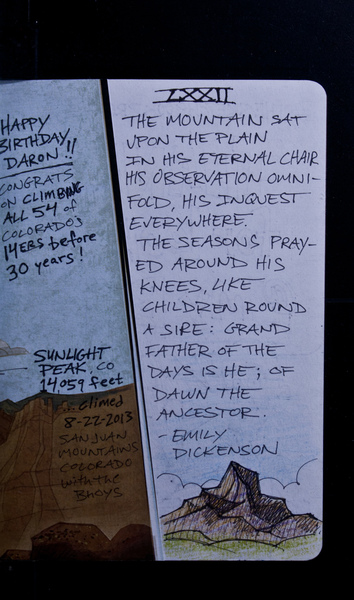 HAPPY
BIRTHDAY,
DARON!!
CONGRATS
ON CLIMBING
ALL 54 of
COLORADO'S
14ERS before
30 years!
SUNLIGHT
PEAK, CO
14,059 feet
climed
8-22-2013
SAN JUAN
MOUNTAINS
COLORADO
with the
BHOYS
LXXII
THE MOUNTAIN SAT
UPON THE PLAIN
IN HIS ETERNAL CHAIR
HIS OBSERVATION OMNI-
FOLD, HIS INQUEST
EVERYWHERE.
THE SEASONS PRAY-
ED AROUND HIS
KNEES, LIKE
CHILDREN ROUND
A SIRE: GRAND
FATHER OF THE
DAYS IS HE; OF
DAWN THE
ANCESTOR.
- EMILY
DICKENSON